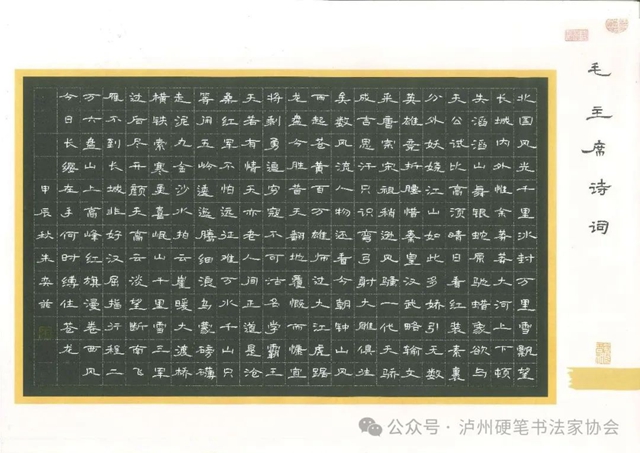 毛主席诗词
北国风光千里冰封万里雪飘望
长城内外惟余莽莽大河上下顿
失滔滔山舞银蛇原驰蜡象欲与
天公试比高须晴日看红装素裹
分外妖娆江山如此多娇引无数
英雄竞折腰惜秦皇汉武略输文
采唐宗宋祖稍逊风骚一代天骄
成吉思汗只识弯弓射大雕俱往
矣数风流人物还看今朝钟山风
雨起苍黄百万雄师过大江虎踞
龙盘今胜昔天翻地覆慨而慷宜
将剩勇追穷寇不可沽名学霸王
天若有情天亦老人间正道是沧
桑红军不怕远征难万水千山只
等闲五岭逶迤腾细浪乌蒙磅礴
走泥丸金沙水拍云崖暖大渡桥
横铁索寒更喜岷山千里雪三军
过后尽开颜天高云淡望断南飞
雁不到长城非好汉屈指行程二
万六盘山上高峰红旗漫卷西风
今日长缨在手何时缚住苍龙
甲辰秋朱奕
公众号·泸州硬笔书法家协会